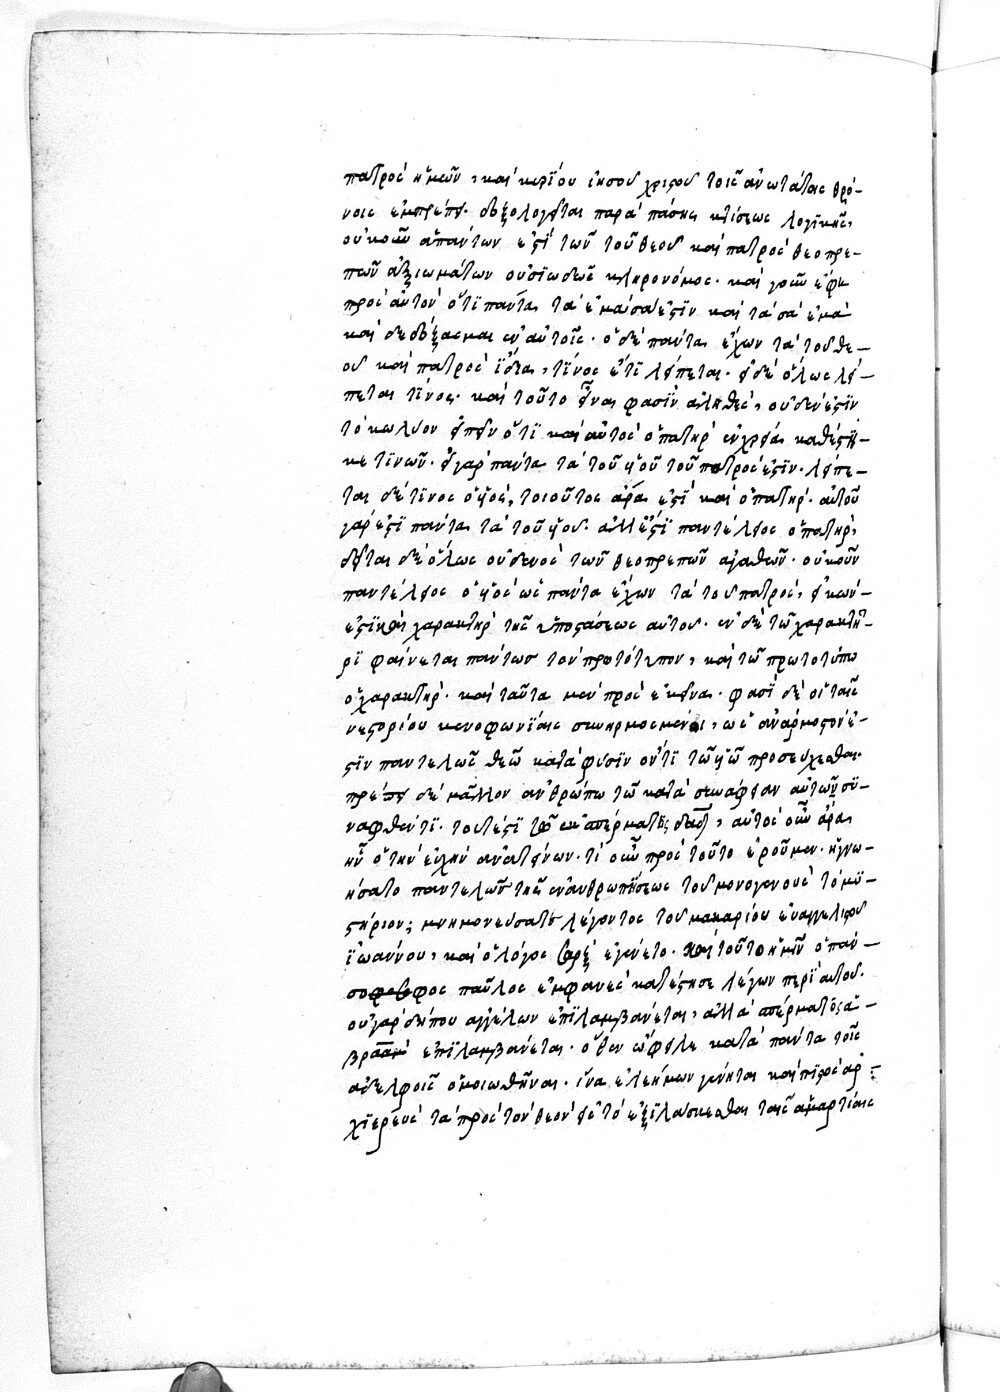 πατρὸς ἡμῶν, καὶ κυρίου ἰησοῦ χριστοῦ τοῖς ἀνωτάτοις θρό-
νοις ἐμπρέπει. δοξολογεῖται παρὰ πάσης κτίσεως λογικῆς,
οὐκοῦν ἁπάντων ἐστὶ τῶν τοῦ θεοῦ καὶ πατρὸς θεοπρε-
πῶν ἀξιωμάτων οὐσιωδῶς κληρονόμος. καὶ γοῦν ἔφη
πρὸς αὐτὸν ὅτι πάντα τὰ ἐμὰ σά ἐστιν καὶ τὰ σὰ ἐμὰ
καὶ δεδόξασμαι ἐν αὐτοῖς. ὁ δὲ πάντα ἔχων τὰ τοῦ θε-
οῦ καὶ πατρὸς ἴδια, τίνος ἔτι λείπεται. εἰ δὲ ὅλως λεί-
πεται τινός. καὶ τοῦτο εἶναι φασὶν ἀληθὲς, οὐδέν ἐστιν
τὸ κωλῦον εἰπεῖν ὅτι καὶ αὐτὸς ὁ πατὴρ ἐν χρείᾳ καθέστη-
κε τινῶν. εἰ γὰρ πάντα τὰ τοῦ υἱοῦ τοῦ πατρός ἐστιν. λείπε-
ται δέ τινος ὁ υἱὸς, τοιοῦτος ἄρα ἐστὶ καὶ ὁ πατὴρ. αὐτοῦ
γάρ ἐστι πάντα τὰ τοῦ υἱοῦ. ἀλλ' ἔστι παντέλειος ὁ πατὴρ,
δεῖται δὲ ὅλως οὐδενὸς τῶν θεοπρεπῶν ἀγαθῶν. οὐκοῦν
παντέλειος ὁ υἱὸς ὡς πάντα ἔχων τὰ τοῦ πατρὸς, εἰκών-
ἐστι καὶ χαρακτὴρ τῆς ὑποστάσεως αὐτοῦ. ἐν δὲ τῷ χαρακτῆ-
ρι φαίνεται πάντως τὸν πρωτότυπον, καὶ τῷ πρωτοτύπῳ
ὁ χαρακτὴρ. καὶ ταῦτα μὲν πρὸς ἐκεῖνα. φασὶ δὲ οἱ ταῖς
νεστορίου κενοφωνίαις συνηρμοσμένοι, ὡς ἀνάρμοστον ἐ-
στιν παντελῶς θεῷ κατὰ φύσιν ὄντι τῷ υἱῷ προσεύχεσθαι.
πρέπει δὲ μᾶλλον ἀνθρώπῳ τῷ κατὰ συνάφειαν αὐτῷ συ-
ναφθέντι. τουτέστι τῷ ἐκ σπέρματος δαδ, αὐτὸς οὖν ἄρα
ἦν ὁ τὴν εὐχὴν ἀνατείνων. τί οὖν πρὸς τοῦτο ἐροῦμεν. ἠγνω-
ήσατο παντελῶς τῆς ἐνανθρωπήσεως τοῦ μονογενοῦς τὸ μυ-
στήριον; μνημονεύσατε λέγοντος τοῦ μακαρίου εὐαγγελιστοῦ
ἰωάννου, καὶ ὁ λόγος σὰρξ ἐγένετο. καὶ τοῦτο ἡμῖν ὁ πάν-
σοφος παῦλος ἐμφανὲς κατέστησε λέγων περὶ αὐτοῦ.
οὐ γὰρ δήπου ἀγγέλων ἐπιλαμβάνεται, ἀλλὰ σπέρματος ἀ-
βραὰμ ἐπιλαμβάνεται. ὅθεν ὤφειλε κατὰ πάντα τοῖς
ἀδελφοῖς ὁμοιωθῆναι. ἵνα ἐλεήμων γένηται καὶ πιστὸς ἀρ-
χιερεὺς τὰ πρὸς τὸν θεὸν εἰς τὸ ἐξιλάσκεσθαι ταῖς ἁμαρτίαις